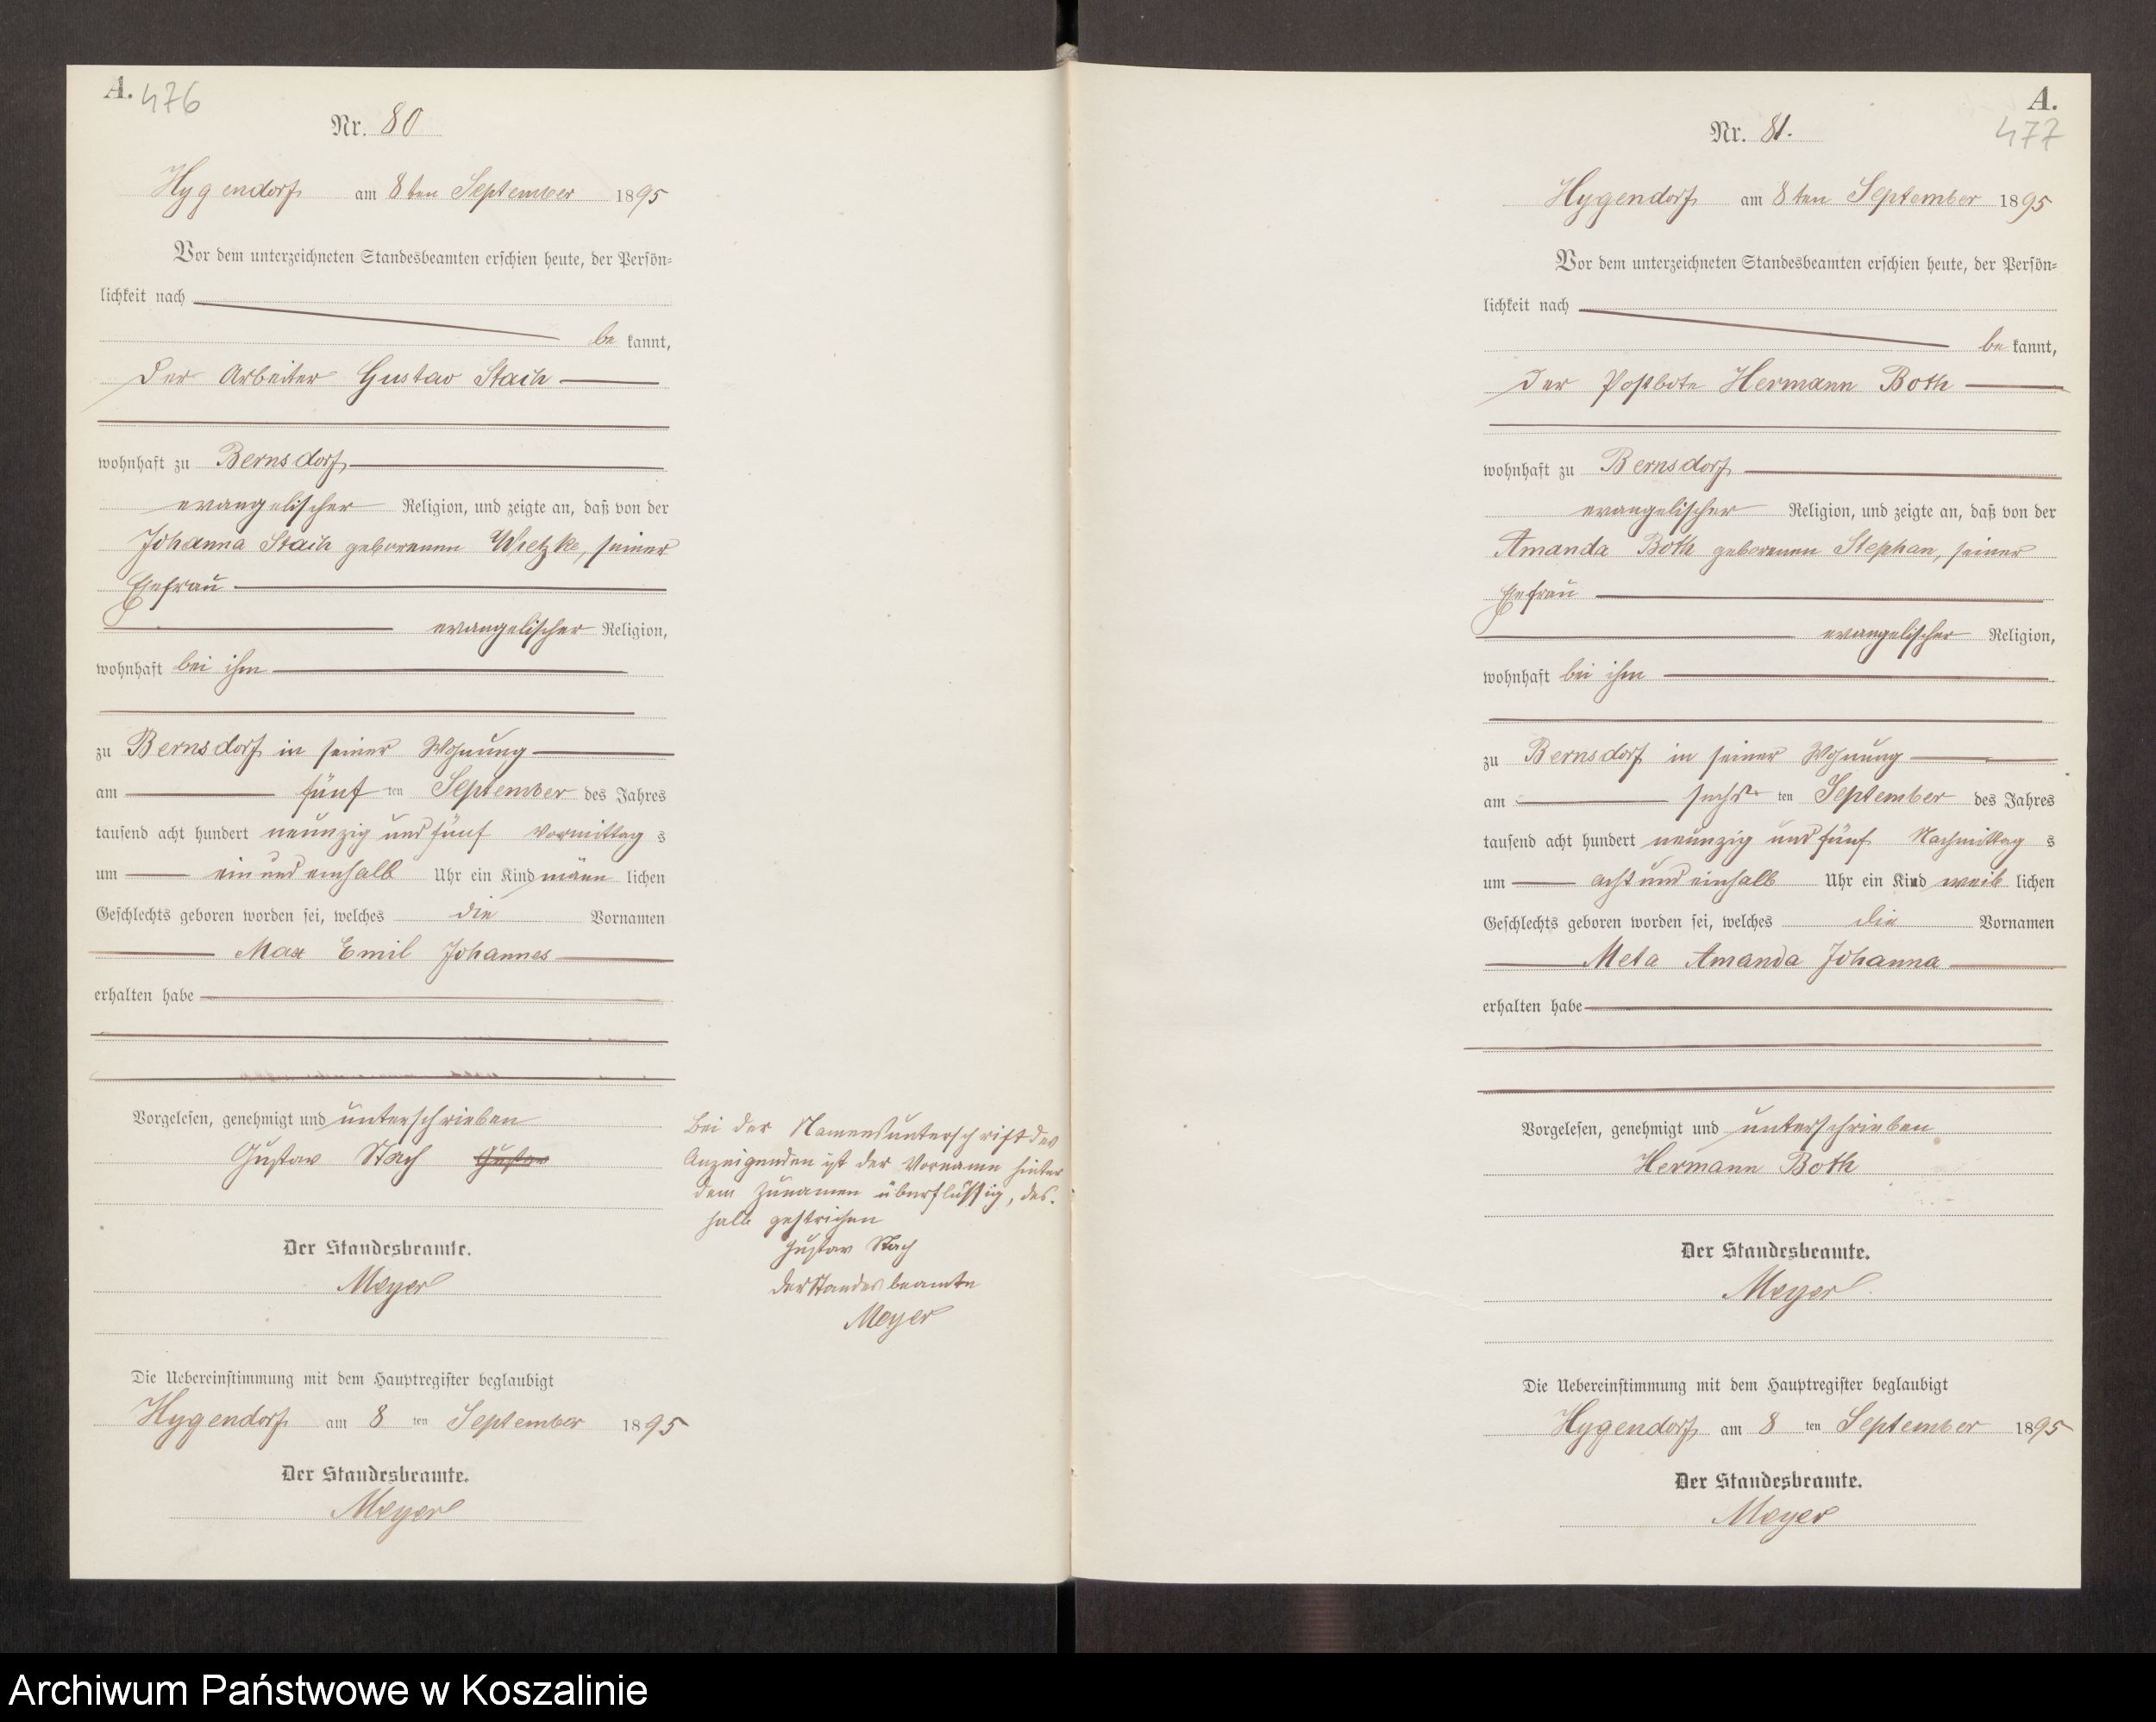 A. 476
Nr. 80
Hygendorf am 8ten September 1895
Vor dem unterzeichneten Standesbeamten erschien heute, der Persön-
lichkeit nach
be kannt,
der Arbeiter Gustav Stach
wohnhaft zu Bernsdorf
evangelischer Religion, und zeigte an, daß von der
Johanna Stach geborenen Wietzke, seiner
Ehefrau
evangelischer Religion,
wohnhaft bei ihm
zu Bernsdorf in seiner Wohnung
am fünf ten September des Jahres
tausend acht hundert neunzig und fünf Vormittag s
um ein und einhalb Uhr ein Kind männ lichen
Geschlechts geboren worden sei, welches die Vornamen
Max Emil Johannes
erhalten habe
Vorgelesen, genehmigt und unterschrieben
Gustav Stach Gustav
Der Standesbeamte.
Meyer
Die Uebereinstimmung mit dem Hauptregister beglaubigt
Hygendorf am 8 ten September 1895
Der Standesbeamte.
Meyer
Bei der Namensunterschrift des
Anzeigenden ist der Vorname hinter
dem Zunamen überflüssig, des-
halb gestrichen
Gustav Stach
der Standesbeamte
Meyer
A.
477
Nr. 81.
Hygendorf am 8ten September 1895
Vor dem unterzeichneten Standesbeamten erschien heute, der Persön-
lichkeit nach
be kannt,
der Postbote Hermann Both
wohnhaft zu Bernsdorf
evangelischer Religion, und zeigte an, daß von der
Amanda Both geborenen Stephan, seiner
Ehefrau
evangelischer Religion,
wohnhaft bei ihm
zu Bernsdorf in seiner Wohnung
am sechs ten September des Jahres
tausend acht hundert neunzig und fünf Nachmittag s
um acht und einhalb Uhr ein Kind weib lichen
Geschlechts geboren worden sei, welches die Vornamen
Meta Amanda Johanna
erhalten habe
Vorgelesen, genehmigt und unterschrieben
Hermann Both
Der Standesbeamte.
Meyer
Die Uebereinstimmung mit dem Hauptregister beglaubigt
Hygendorf am 8 ten September 1895
Der Standesbeamte.
Meyer
Archiwum Państwowe w Koszalinie